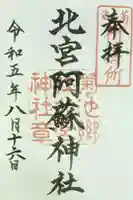 奉拝
北宮阿蘇神社
令和五年八月十六日
菊池郷
神社章